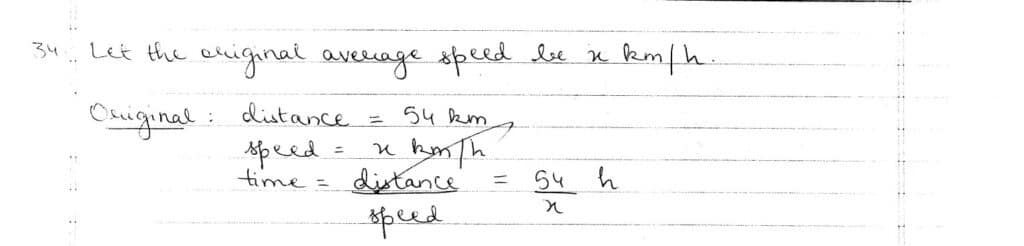 34. Let the original average speed be x km/h.
Original : distance = 54 km
speed = x km/h
time = distance/speed = 54/x h